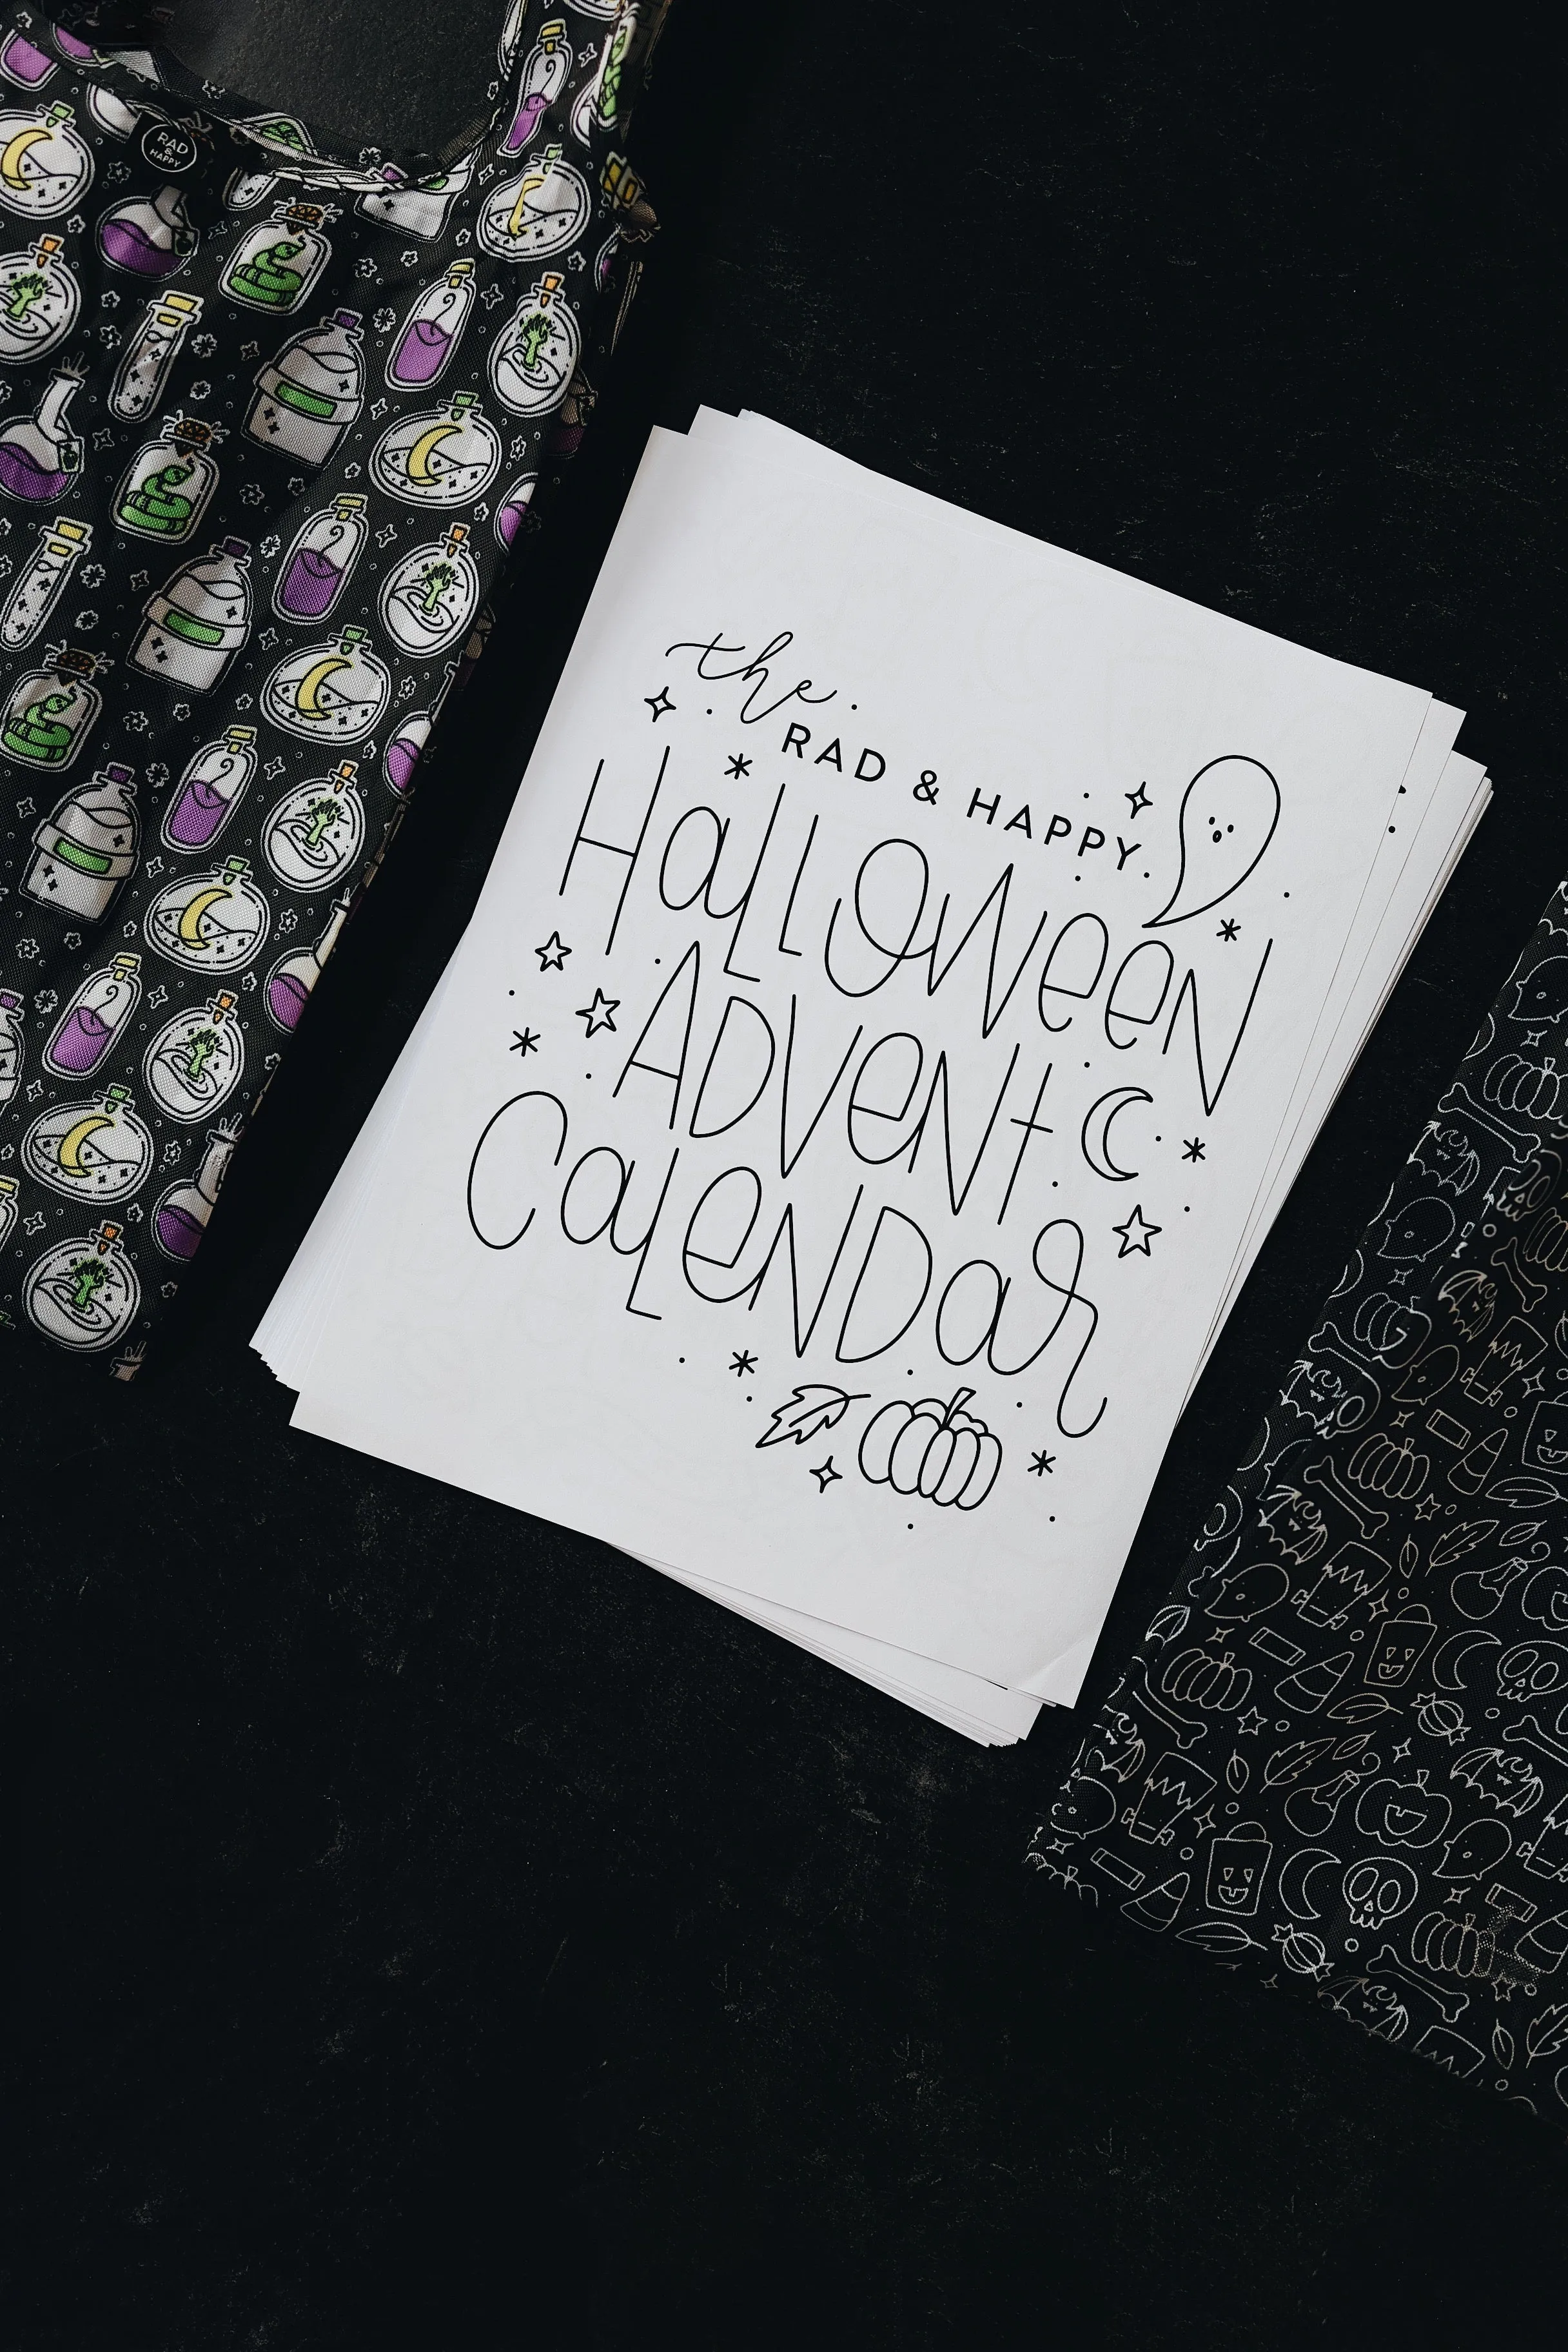 RAD
&
HAPPY
the
RAD & HAPPY
Halloween
Advent
Calendar